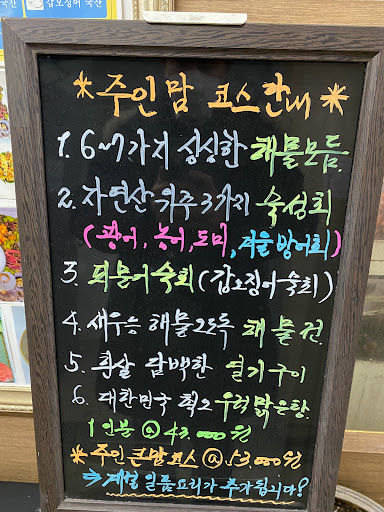 갑오징어 국산
*주인맘 코스안내*
1. 6~7가지 싱싱한 해물모듬
2. 자연산 위주 3가지 숙성회
(광어, 농어, 도미, 겨울 방어회)
3. 피문어숙회(갑오징어숙회)
4. 새우등 해물 듬뿍 해물전
5. 흰살 담백한 열기구이
6. 대한민국 최고 우럭맑은탕
1인분 @ 43.000원
*주인큰맘코스 @53.000원
⇒계절 일품요리가 추가됩니다!